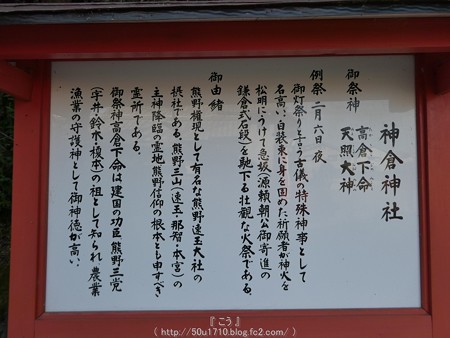 神倉神社
御祭神
高倉下命
天照大神
例祭 二月六日夜
御灯祭りと言う古儀の特殊神事として
名高い、白装束に身を固めた祈願者が神火を
松明にうけて急坂(源頼朝公御寄進の
鎌倉式石段)を馳下る壮観な火祭である。
御由緒
熊野権現として有名な熊野速玉大社の
摂社である。熊野三山(速玉・那智・本宮)の
主神降臨の霊地熊野信仰の根本とも申すべき
霊所である。
御祭神高倉下命は建国の功臣熊野三党
(宇井・鈴木・榎本)の祖として知られ農業
漁業の守護神として御神徳が高い。
『こう』
( http://50u1710.blog.fc2.com/ )